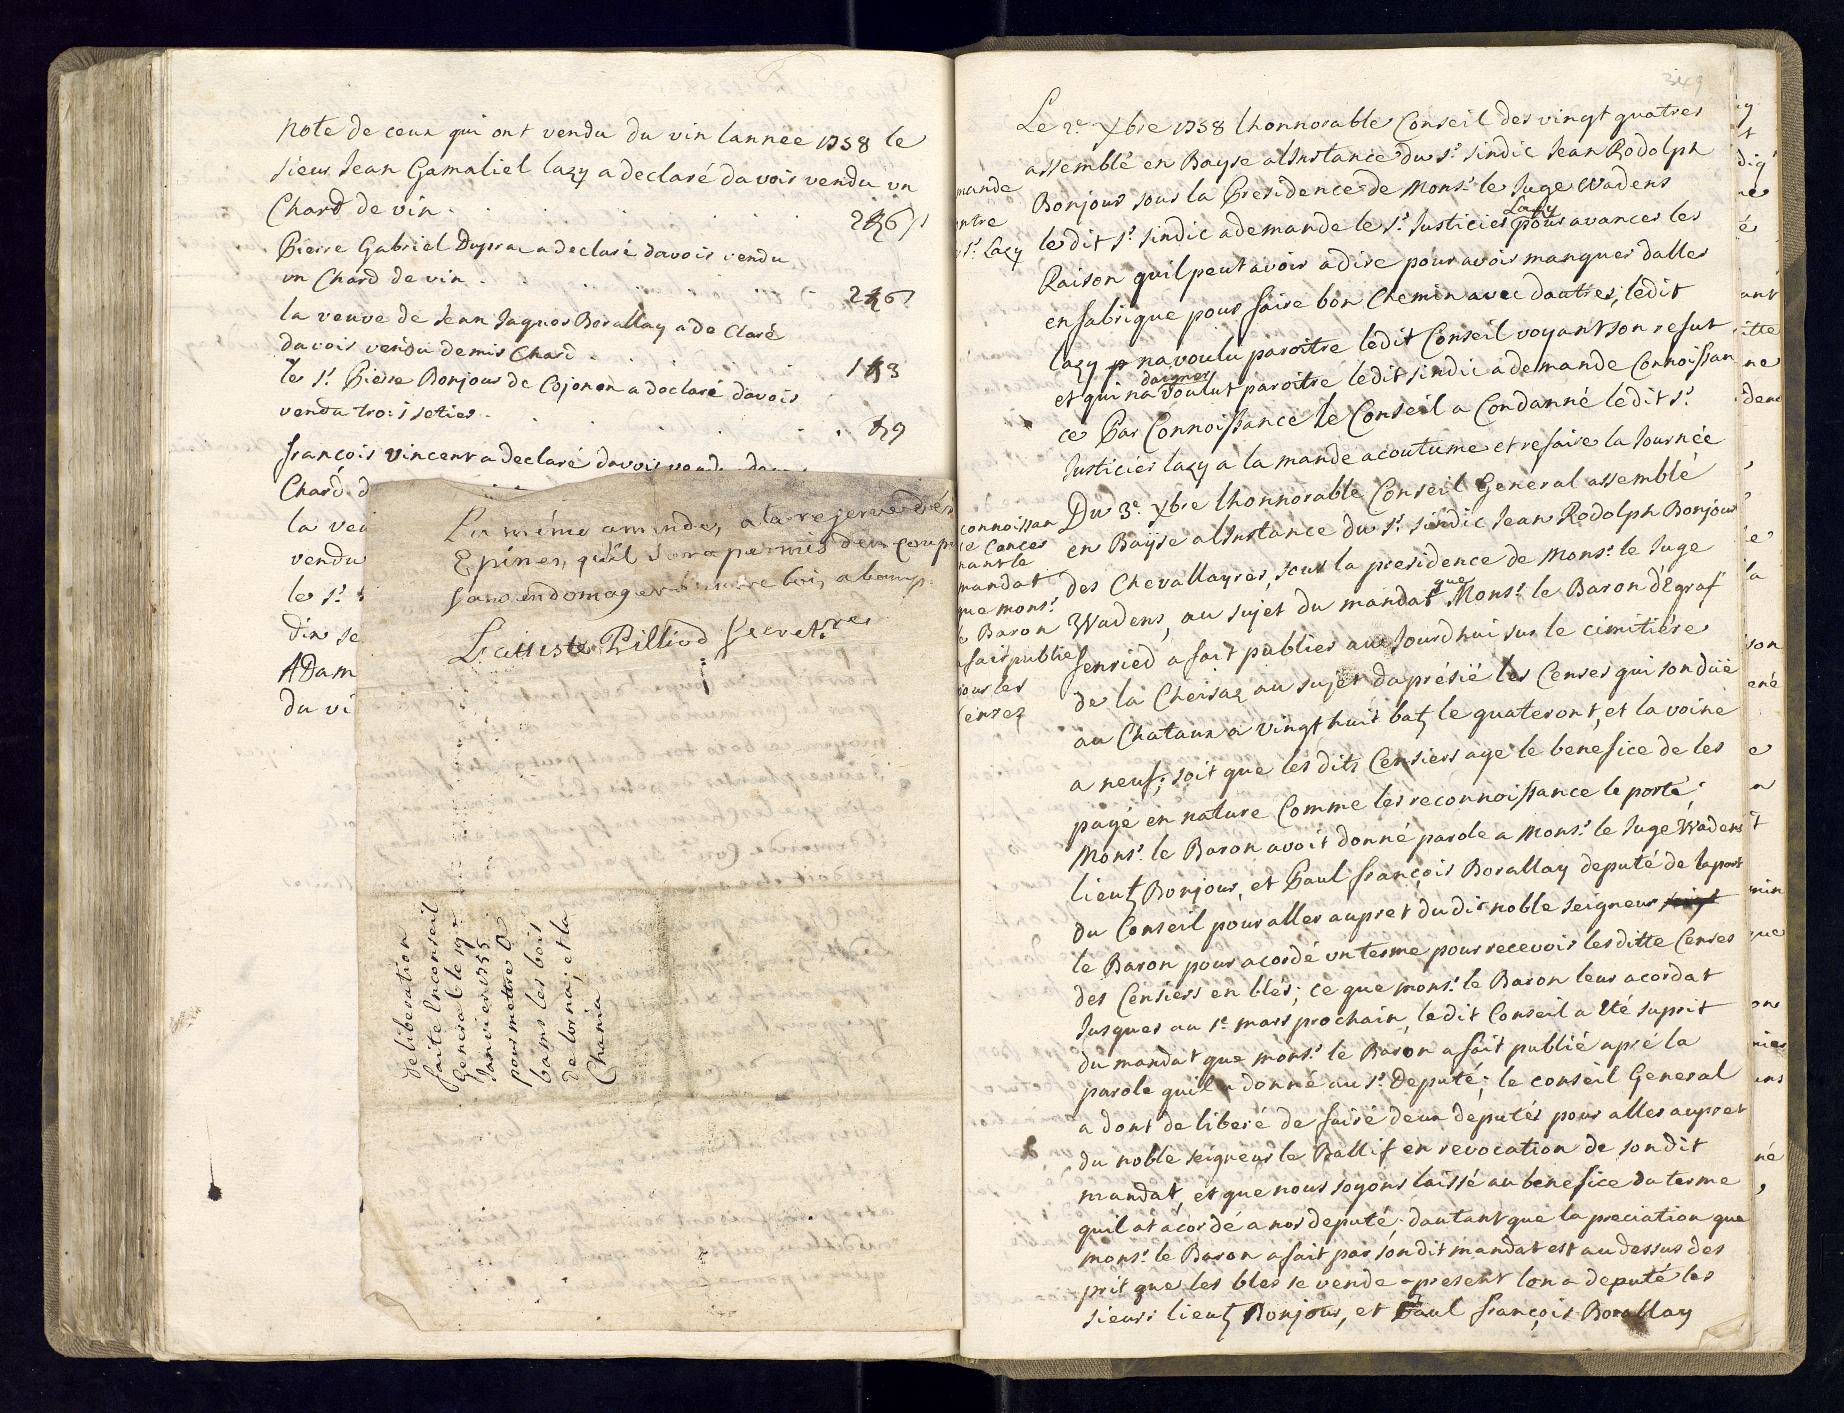 note de ceux qui ont vendu du vin lannee 1758 le
sieur Jean Gamaliel lazy a declaré davoir vendu un
Chard de vin.
Pierre Gabriel Dupraz a declaré davoir vendu
un Chard de vin.
la veuve de Jean Jaques Borallay a de Claré
davoir vendu demis Chard.
le sr. Pierre Bonjour de Cojonon a declaré davoir
vendu trois setier.
françois vincent a declaré davoir vendu
Chard d
la veu
vendu
le sr.
din se
ADam
du vi
La même amande, a la reserve des
Epines, quil sera permis den coupe
sans endomager autre bois a bamp.
L'atteste Pilliod Secret.re
deliberation
faite En conseil
General le 19e
Janvier 1755
pour mettre a
bams les bois
de lorna, et la
Chania
349
Le 2e. Xbre 1758 lhonnorable Conseil des vingt quatres
assemblé en Bayse a lInstance du sr. sindic Jean Rodolph
Bonjour sous la Presidence de Monsr. le Juge Wadens
ledit sr. sindic a demande le sr. Justicier Lazy pour avancer les
Raison quil peut avoir a dire pour avoir manquer daller
en fabrique pour faire bon Chemin avec dautres, ledit
lazy p na voulu paroitre ledit Conseil voyant son refut
et qui na daigner voulut paroitre ledit sindic a demande Connoissan
ce Par Connoissance le Conseil a Condanné ledit sr.
Justicier lazy a la mande acoutume et refaire la Journée
mande
ntre
sr. Lazy
Du 3e. Xbre lhonnorable Conseil General assemblé
en Bayse a lInstance du sr. sindic Jean Rodolph Bonjour
des Chevallayres, sous la presidence de Monsr. le Juge
Wadens, au sujet du mandat que Monsr. le Baron dEgraf
fenried a fait publier aux Jourdhui sur le cimitiére
de la Cheisaz au sujet daprésié les Censes qui son düe
au Chataux a vingt huit batz le quateront, et la voine
a neuf; soit que les dits Censiers aye le benefice de les
payé en nature Comme les reconnoissance le porte;
Monsr. le Baron avoit donné parole a Monsr. le Juge Wadens
lieutz Bonjour, et Paul françois Borallay deputé de la part
du Conseil pour aller aupret du dit noble seigneur
le Baron pour acordé un terme pour recevoir les ditte Censes
des Censiers en bles; ce que monsr. le Baron leur acordat
Jusques au 1e. mars prochain, ledit Conseil a Eté suprit
du mandat que monsr. le Baron a fait publié apré la
parole quil a donné au sr. Deputé; le conseil General
a dont de liberé de fairé deux deputés pour aller aupret
du noble seigneur le Ballif en revocation de son dit
mandat, et que nous soyons laissé au benefice du terme
quil at acordé a nos deputé. dautant que la preciation que
monsr. le Baron a fait par son dit mandat est au dessus des
prit que les bles se vende apresent lon a deputé les
sieurs lieutz Bonjour, et Paul françois Borallay
connoissan
ce Concer
nant le
mandat
que monsr.
le Baron
a fait publie
pour les
Censez